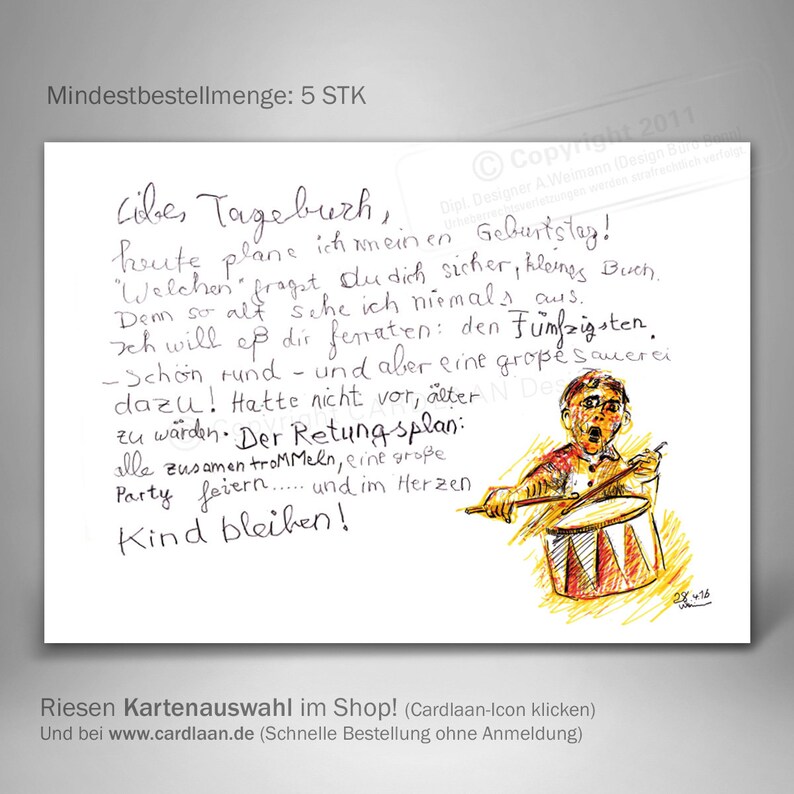 Mindestbestellmenge: 5 STK
© Copyright 2011
Dipl. Designer A.Weimann (Design Büro Bonn)
Urheberrechtsverletzungen werden strafrechtlich verfolgt
Libes Tagebuch,
heute plane ich meinen Geburtstag!
"Welchen" fragst Du dich sicher, kleines Buch.
Denn so alt sehe ich niemals aus.
Ich will eß dir ferraten: den Fümfzigsten.
- Schön rund - und aber eine große sauerei
dazu! Hatte nicht vor, älter
zu wärden. Der Retungsplan:
alle zusamentroMMeln, eine große
Party feiern..... und im Herzen
Kind bleiben!
© Copyright CARDLAAN Design
28.4.16
Riesen Kartenauswahl im Shop! (Cardlaan-Icon klicken)
Und bei www.cardlaan.de (Schnelle Bestellung ohne Anmeldung)